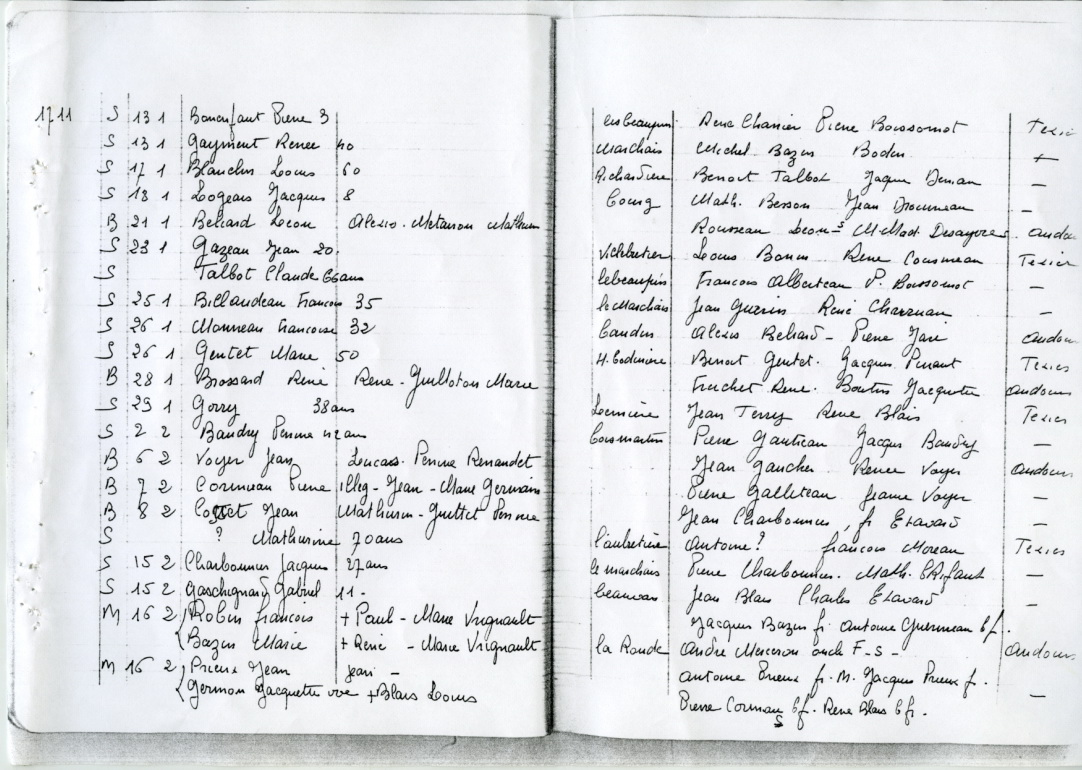 1711 S 13 1 Bonenfant Pierre 3
S 13 1 Gayment Renee 40
S 17 1 Blanchin Louis 60
S 18 1 Logeais Jacques 8
B 21 1 Beliard Leon Alexis - Metanon Mathurin
S 23 1 Gazeau Jean 20
S Talbot Claude 66 ans
S 25 1 Billaudeau Francois 35
S 26 1 Monneau Francoise 32
S 26 1 Gentet Marie 50
B 28 1 Brossard René René - Guilloton Marie
S 29 1 Gorry 38 ans
S 2 2 Baudry Perrine 42 ans
B 6 2 Voyer Jean Lucas - Perrine Renaudet
B 7 2 Cormeau Pierre illeg - Jean - Marie Germain
B 8 2 Cottet Jean Mathurin - Guettet Perrine
S ? Mathurine 70 ans
S 15 2 Charbonnier Jacques 27 ans
S 15 2 Gaschignard Gabriel 11 -
M 16 2 Robin Francois + Paul - Marie Vrignault
Bazin Marie + René - Marie Vrignault
M 16 2 Prieux Jean Jean -
Germon Jacquette vve + Blais Louis
les beaupins René Charrier Pierre Boissonot Texier
Marchais Michel Bazin Bodin +
Richardiere Benoit Talbot Jaques -
bourg Math. Besson Jean Drouineau -
Rousseau Leon - Desayvres andou
Villebretier Louis Bonin René Cousineau Texier
lebeaupins Francois Alberteau P. Boissonot -
le Marchais Jean Guerin René Charruau -
Baudin Alexis Beliard - Pierre Jari andou
H. Bodiniere Benoit Gentet. Jacques Texier
Fruchet René. Boutin Jacquette andouin
Jean Terry René Blais Texier
boismartin Pierre Gautreau Jacques Baudry -
Jean Gaucher Renée Voyer andouin
Pierre Galliteau Jeanne Voyer -
Jean Charbonnier, fr Etavard -
l'aubretiere Antoine? francois Moreau Texier
le marchais Pierre Charbonnier. Math. -
beauvais Jean Blais Charles Etavard -
Jacques Bazin fr. Antoine Guerineau bf.
la Ronde André Merceron oncle F - S - andouin
antoine Prieux fr. M. Jacques Prieux fr.
Pierre Cormaus bf. René Blais bfr. -